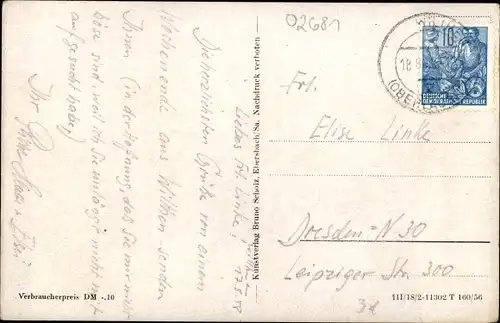 02681
Wilthen,
17.8.58
Liebes Frl. Linke!
Die herzlichsten Grüße von einem
Wochenende aus Wilthen senden
Ihnen (in der Hoffnung, das Sie mir nicht
böse sind, weil ich Sie unlängst nicht mehr
aufgesucht habe)
Ihr
Kunstverlag Bruno Scholz, Ebersbach/Sa. Nachdruck verboten
10
DEUTSCHE
DEMOKRATISCHE REPUBLIK
18.8
(OBERLAUS
Frl.
Elise Linke
Dresden-N 30
Leipziger Str. 300
Verbraucherpreis DM -.10
III/18/2-11302 T 160/56